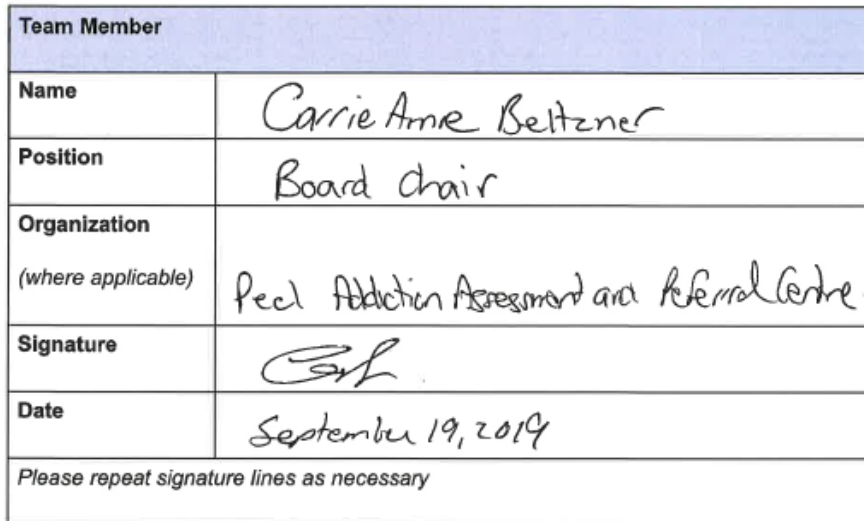 Team Member
Name Carrie Anne Beltzner
Position Board Chair
Organization
(where applicable) Peel Addiction Assessment and Referral Centre
Signature
Date September 19, 2019
Please repeat signature lines as necessary